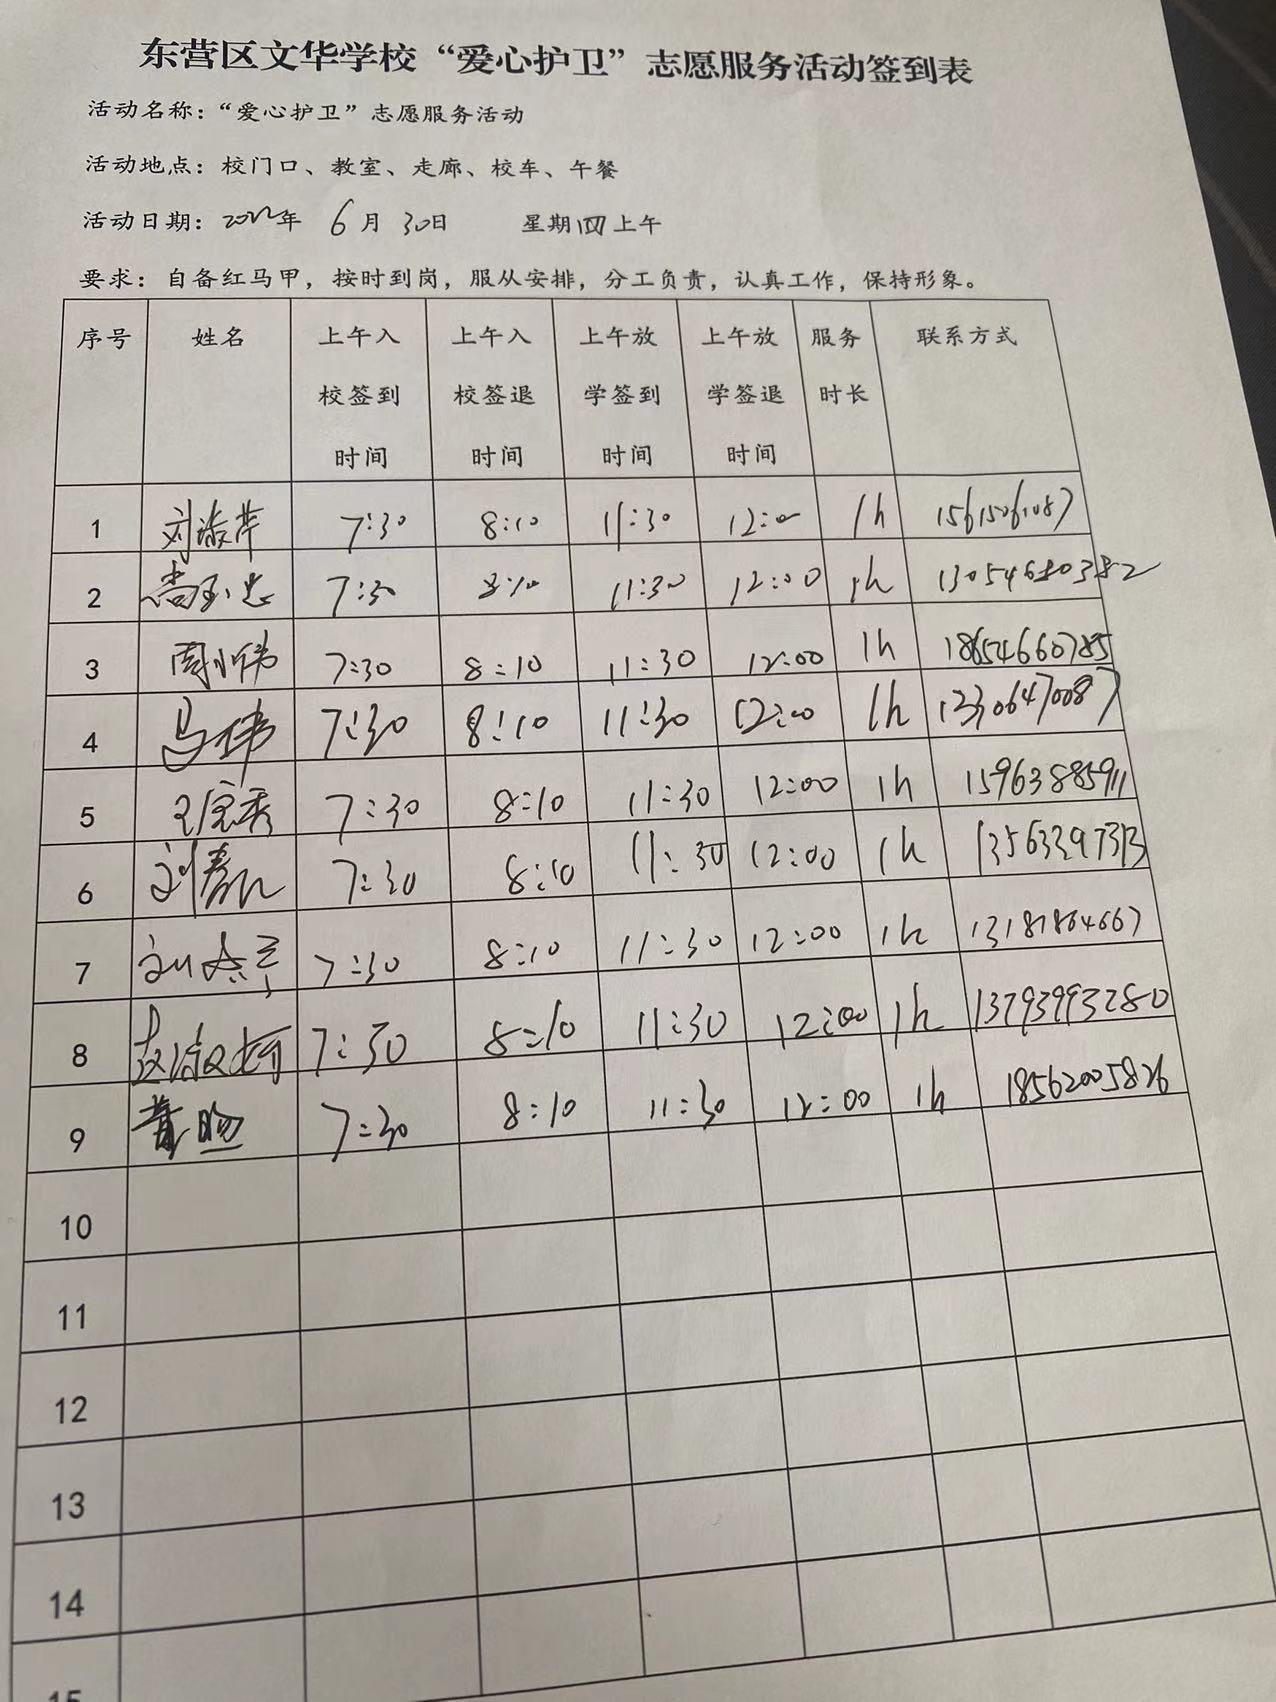 东营区文华学校“爱心护卫”志愿服务活动签到表
活动名称：“爱心护卫”志愿服务活动
活动地点：校门口、教室、走廊、校车、午餐
活动日期：2022年 6月 30日 星期四上午
要求：自备红马甲，按时到岗，服从安排，分工负责，认真工作，保持形象。
序号 姓名 上午入校签到时间 上午入校签退时间 上午放学签到时间 上午放学签退时间 服务时长 联系方式
1 刘淑萍 7:30 8:10 11:30 12:00 1h 15615061087
2 7:30 8:10 11:30 12:00 1h 13054680382
3 周小伟 7:30 8:10 11:30 12:00 1h 18654660785
4 马伟 7:30 8:10 11:30 12:00 1h
5 7:30 8:10 11:30 12:00 1h 15963885911
6 7:30 8:10 11:30 12:00 1h 13563397313
7 7:30 8:10 11:30 12:00 1h 13181864667
8 7:30 8:10 11:30 12:00 1h 13793993280
9 7:30 8:10 11:30 12:00 1h 18562005826
10
11
12
13
14
15